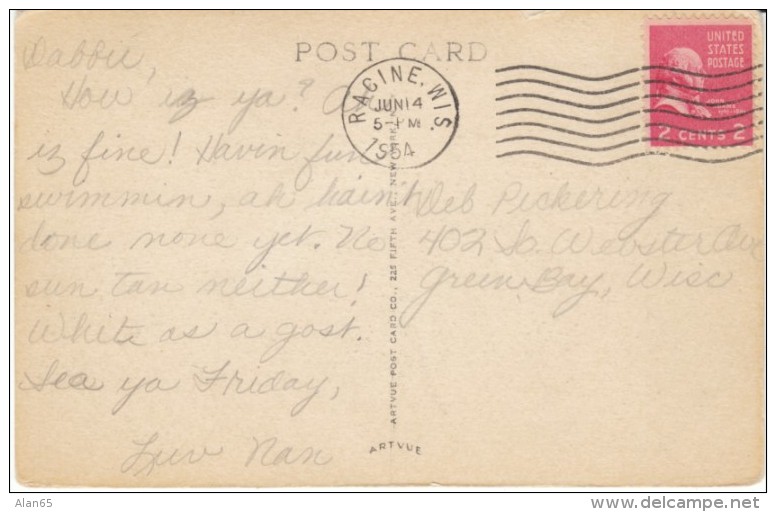 POST CARD
UNITED
STATES
POSTAGE
2 CENTS 2
RACINE, WIS.
JUN 14
5-PM
1954
Dabbie,
How iz ya? Ah
iz fine! Havin fun
swimmin, ah haint
done none yet. No
sun tan neither!
White as a gost.
Sea ya Friday,
Luv Nan
Deb Pickering
402 So. Webster Ave
Green Bay, Wisc
ARTVUE POST CARD CO., 225 FIFTH AVE., NEW YORK
ARTVUE
Alan65
delcampe.net